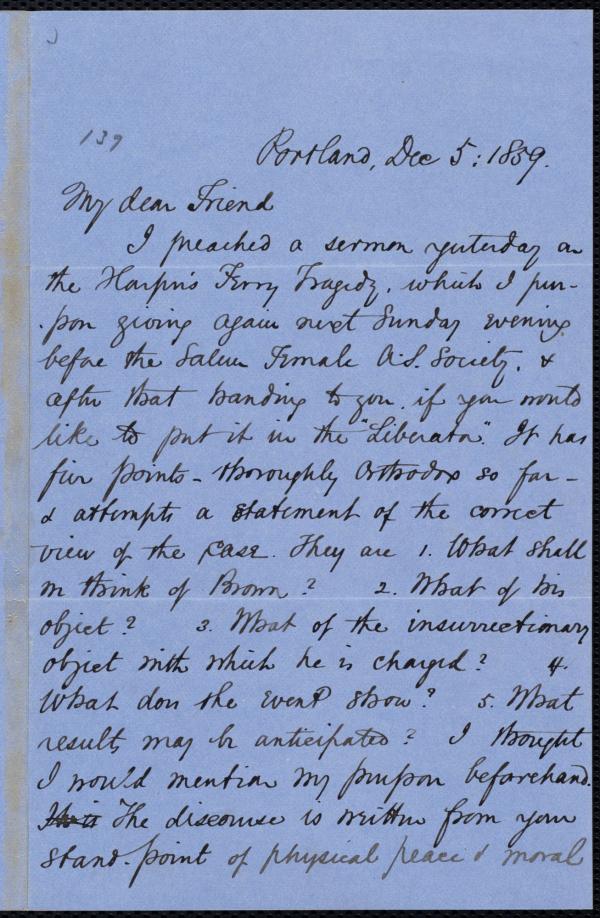 139
Portland, Dec 5: 1859.
My dear Friend
I preached a sermon yesterday on
the Harper's Ferry Tragedy, which I pur-
pose giving again next Sunday evening
before the Salem Female A.S. Society, &
after that handing to you, if you would
like to put it in the "Liberator". It has
five points - thoroughly Orthodox so far -
& attempts a statement of the correct
view of the case. They are 1. What shall
we think of Brown? 2. What of his
object? 3. What of the insurrectionary
object with which he is charged? 4.
What does the event show? 5. What
results may be anticipated? I thought
I would mention my purpose beforehand.
The discourse is written from your
stand-point of physical peace & moral